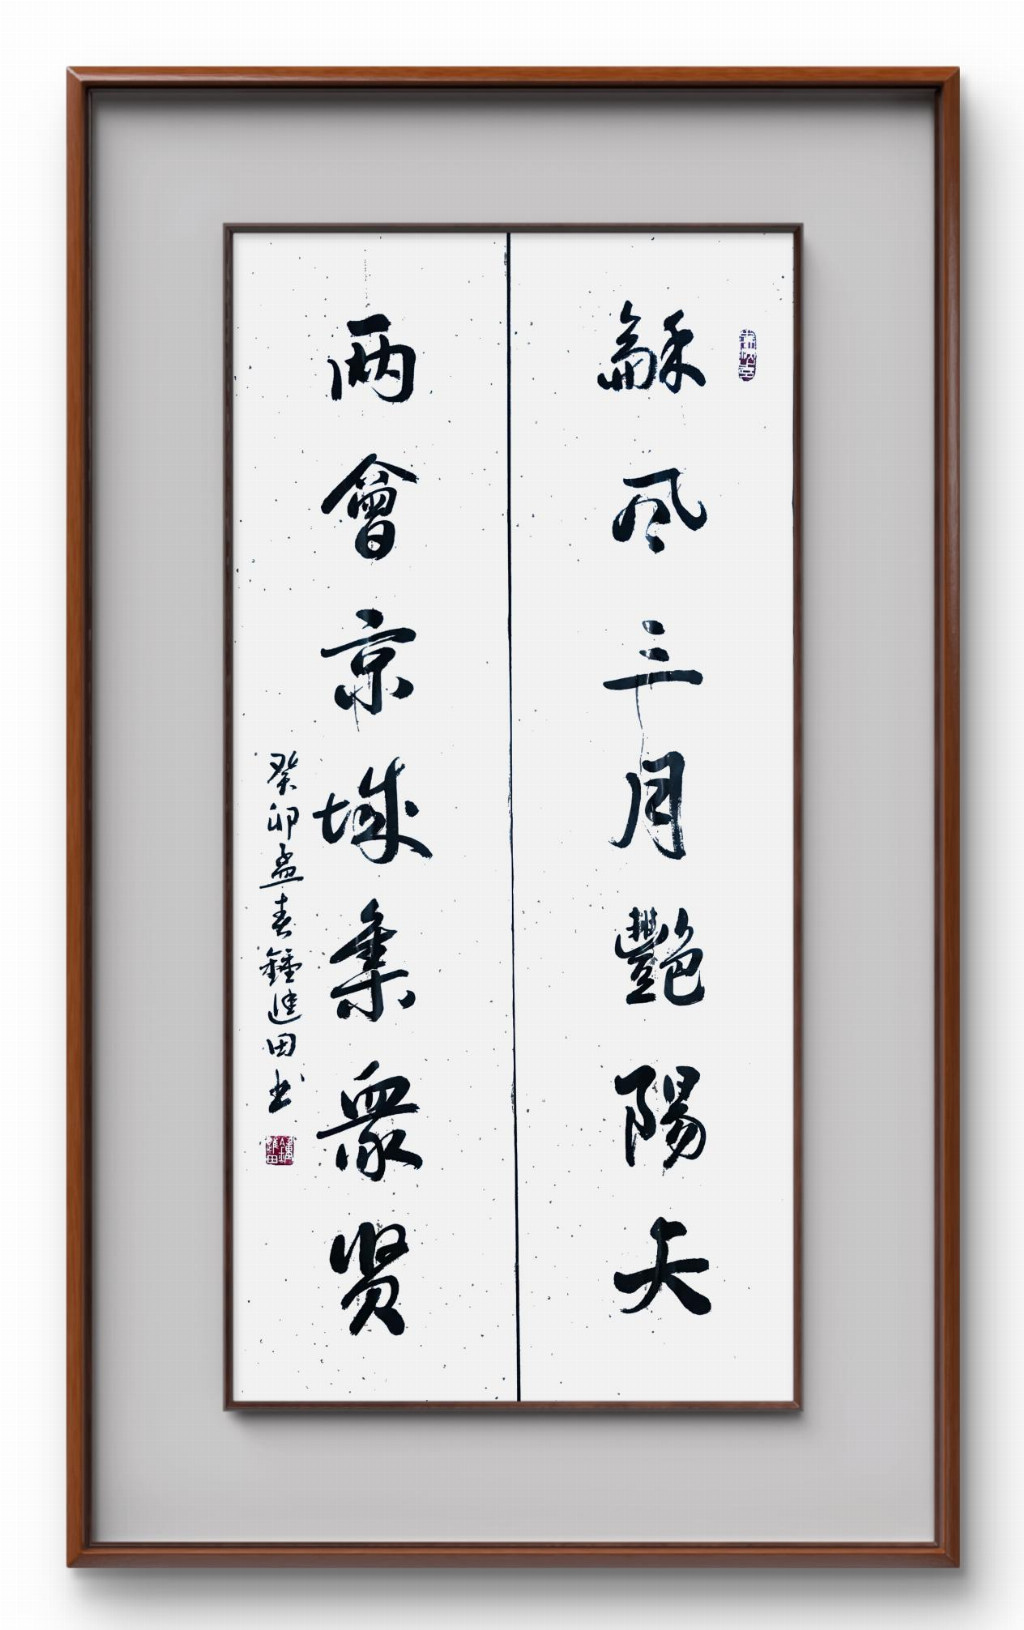 龢风三月艷陽天
两會京城集衆贤
癸卯孟春鍾進田书